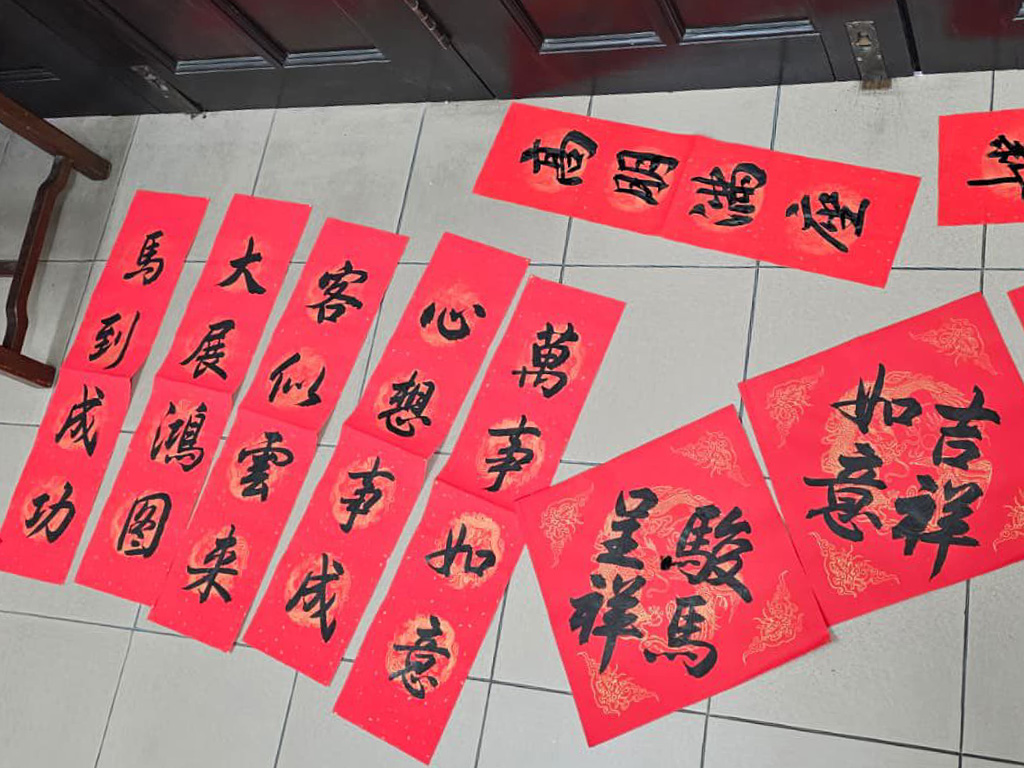 馬到成功
大展鴻图
客似雲来
心想事成
萬事如意
高朋滿座
駿馬呈祥
吉祥如意